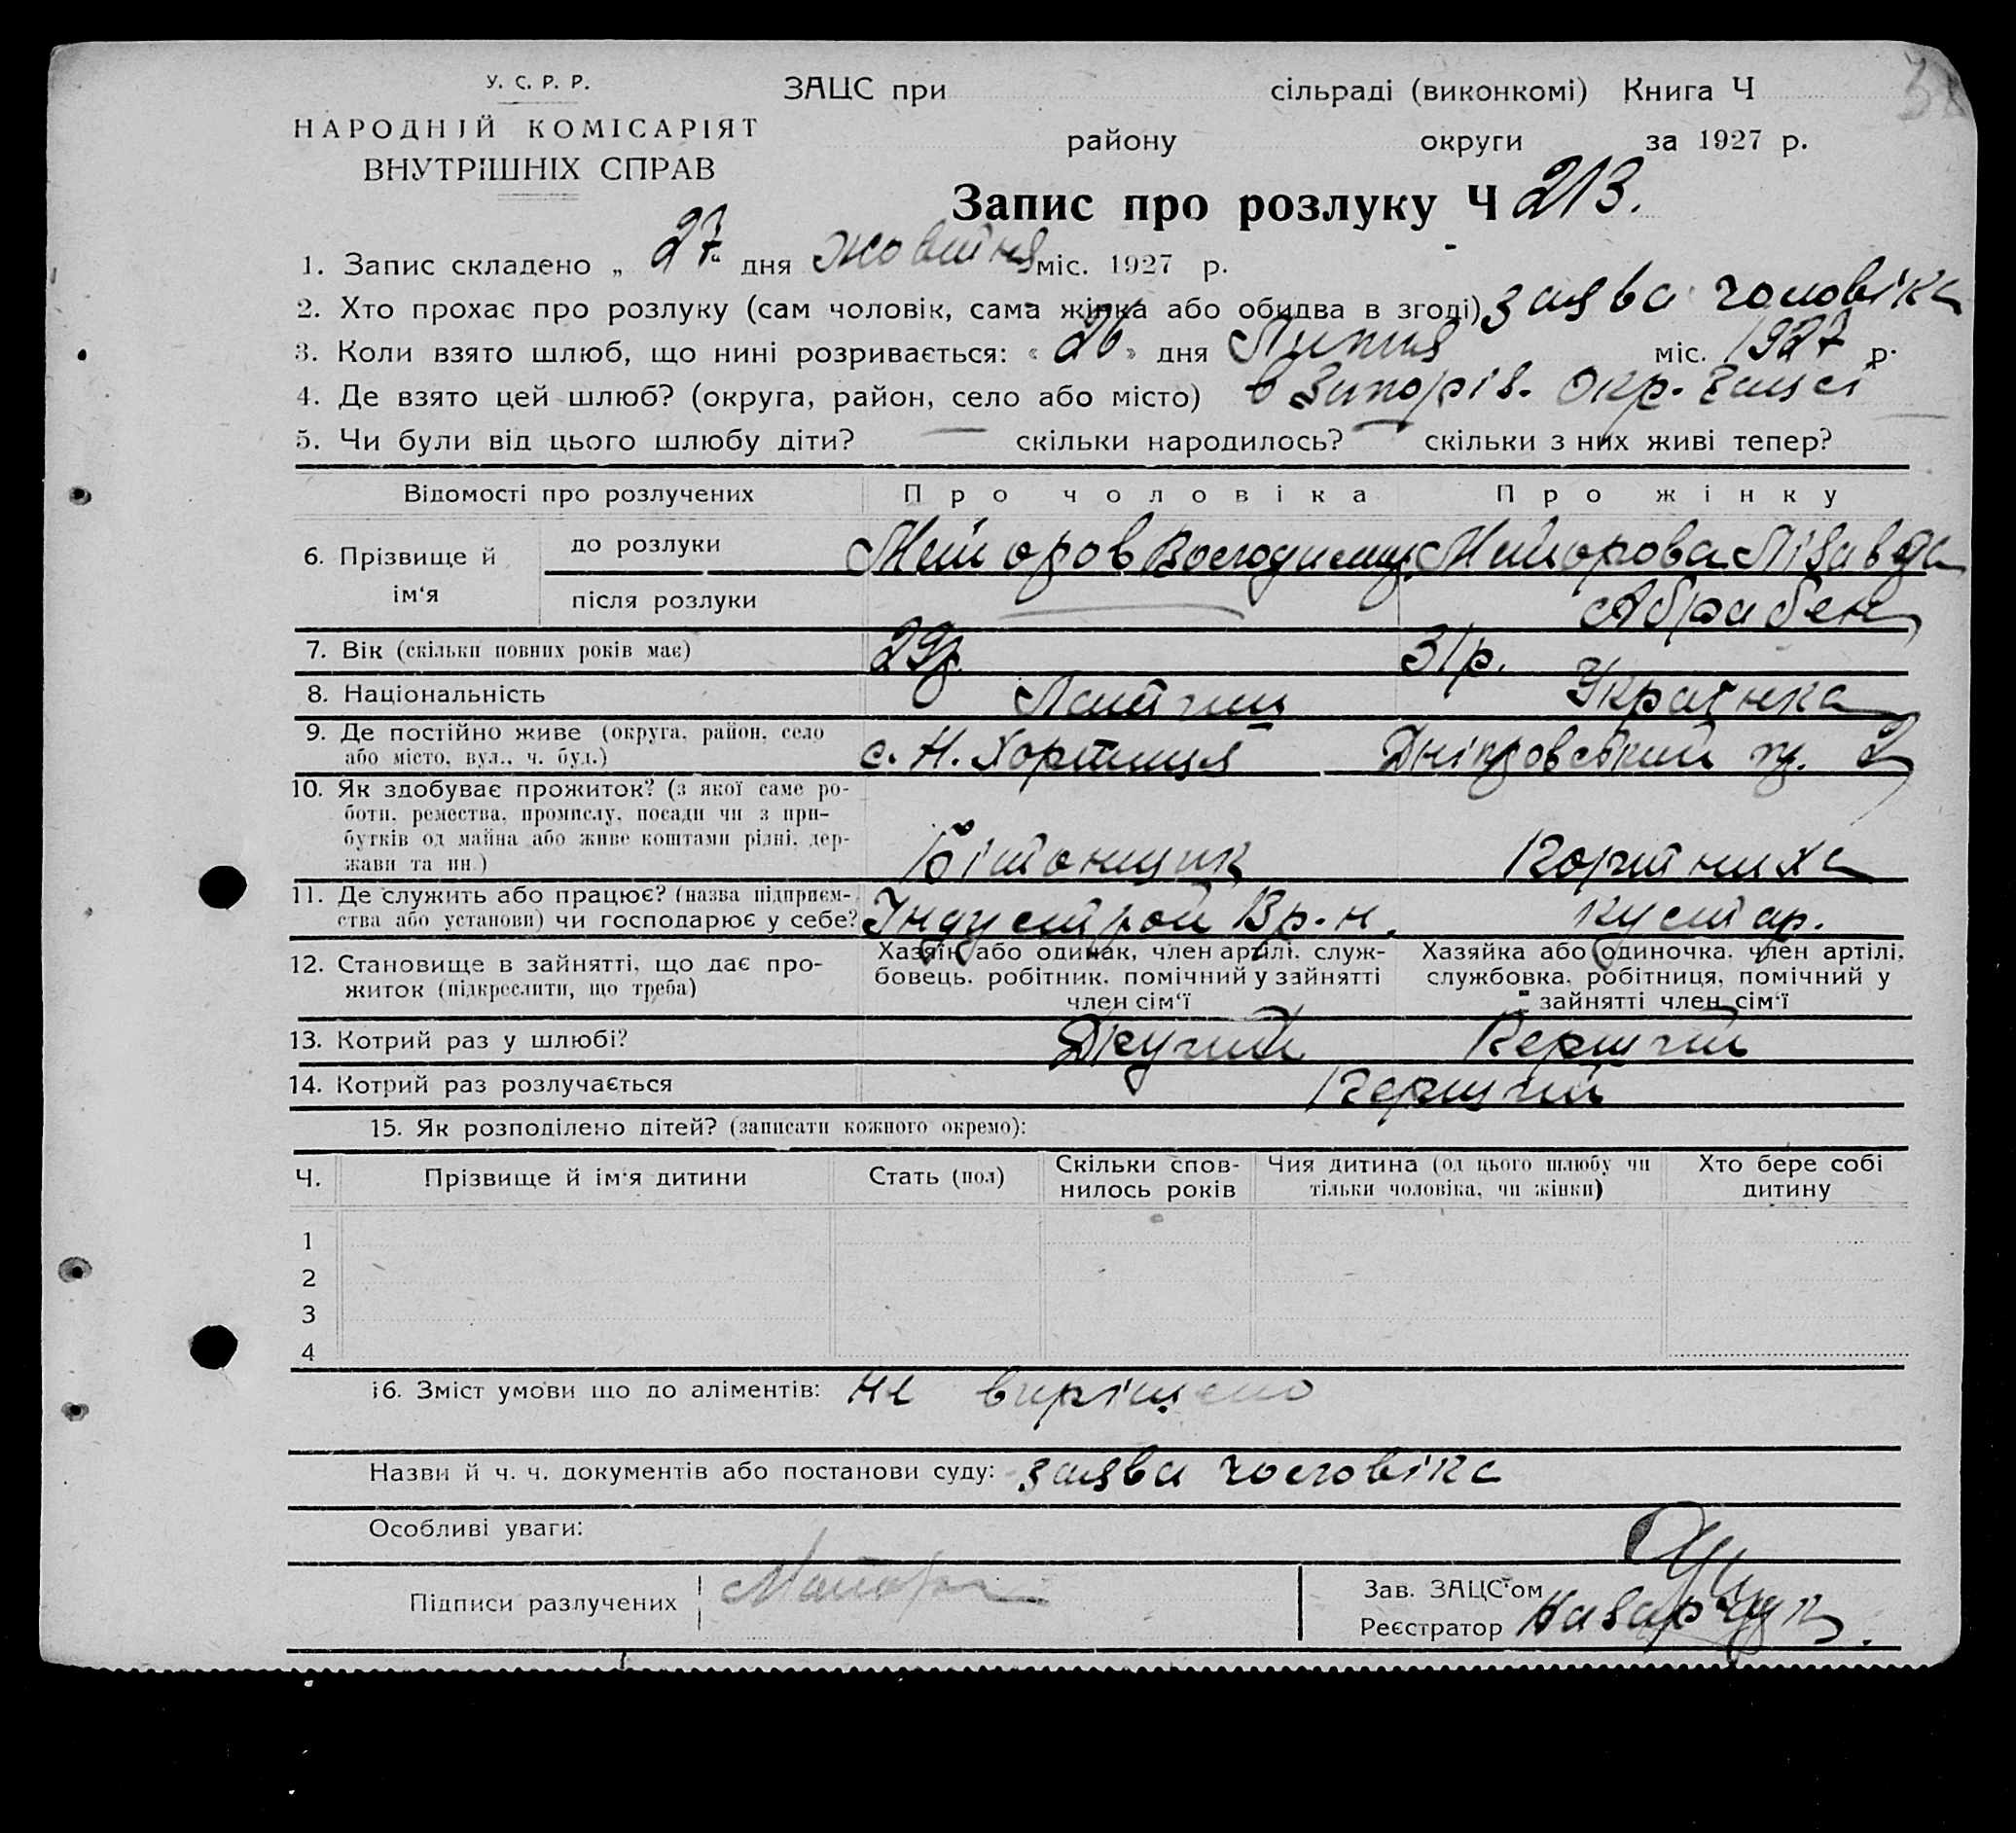 У. С. Р. Р.
НАРОДНІЙ КОМІСАРІЯТ
ВНУТРІШНІХ СПРАВ
ЗАЦС при сільраді (виконкомі) Книга Ч
району округи за 1927 р.
Запис про розлуку Ч 213.
1. Запис складено „ 27 " дня жовтня міс. 1927 р.
2. Хто прохає про розлуку (сам чоловік, сама жінка або обидва в згоді) заява чоловіка
3. Коли взято шлюб, що нині розривається: « 26 » дня Липня міс. 1927 р.
4. Де взято цей шлюб? (округа, район, село або місто) в Запоріз. Окр. Зацсі
5. Чи були від цього шлюбу діти? — скільки народилось? — скільки з них живі тепер? —
Відомості про розлучених Про чоловіка Про жінку
6. Прізвище й ім'я до розлуки Володимир Лізавета
після розлуки —
7. Вік (скільки повних років має) 29р. 31р.
8. Національність Українка
9. Де постійно живе (округа, район, село
або місто, вул., ч. буд.) с. Н. Хортиця Дніпровський 2
10. Як здобуває прожиток? (з якої саме ро-
боти, ремества, промислу, посади чи з при-
бутків од майна або живе коштами рідні, дер-
жави та ин.) Бітонщик
11. Де служить або працює? (назва підприєм-
ства або установи) чи господарює у себе? Індустрой кустар.
12. Становище в зайнятті, що дає про-
житок (підкреслити, що треба)
Хазяїн або одинак, член артілі, служ-
бовець, робітник, помічний у зайнятті
член сім'ї
Хазяйка або одиночка, член артілі,
службовка, робітниця, помічний у
зайнятті член сім'ї
13. Котрий раз у шлюбі? Другий Перший
14. Котрий раз розлучається Перший
15. Як розподілено дітей? (записати кожного окремо):
Ч. Прізвище й ім'я дитини Стать (пол) Скільки спов-
нилось років Чия дитина (од цього шлюбу чи
тільки чоловіка, чи жінки) Хто бере собі
дитину
1
2
3
4
16. Зміст умови що до аліментів: не вирішено
Назви й ч. ч. документів або постанови суду: заява чоловіка
Особливі уваги:
Підписи разлучених
Зав. ЗАЦС'ом
Реєстратор Назарчук